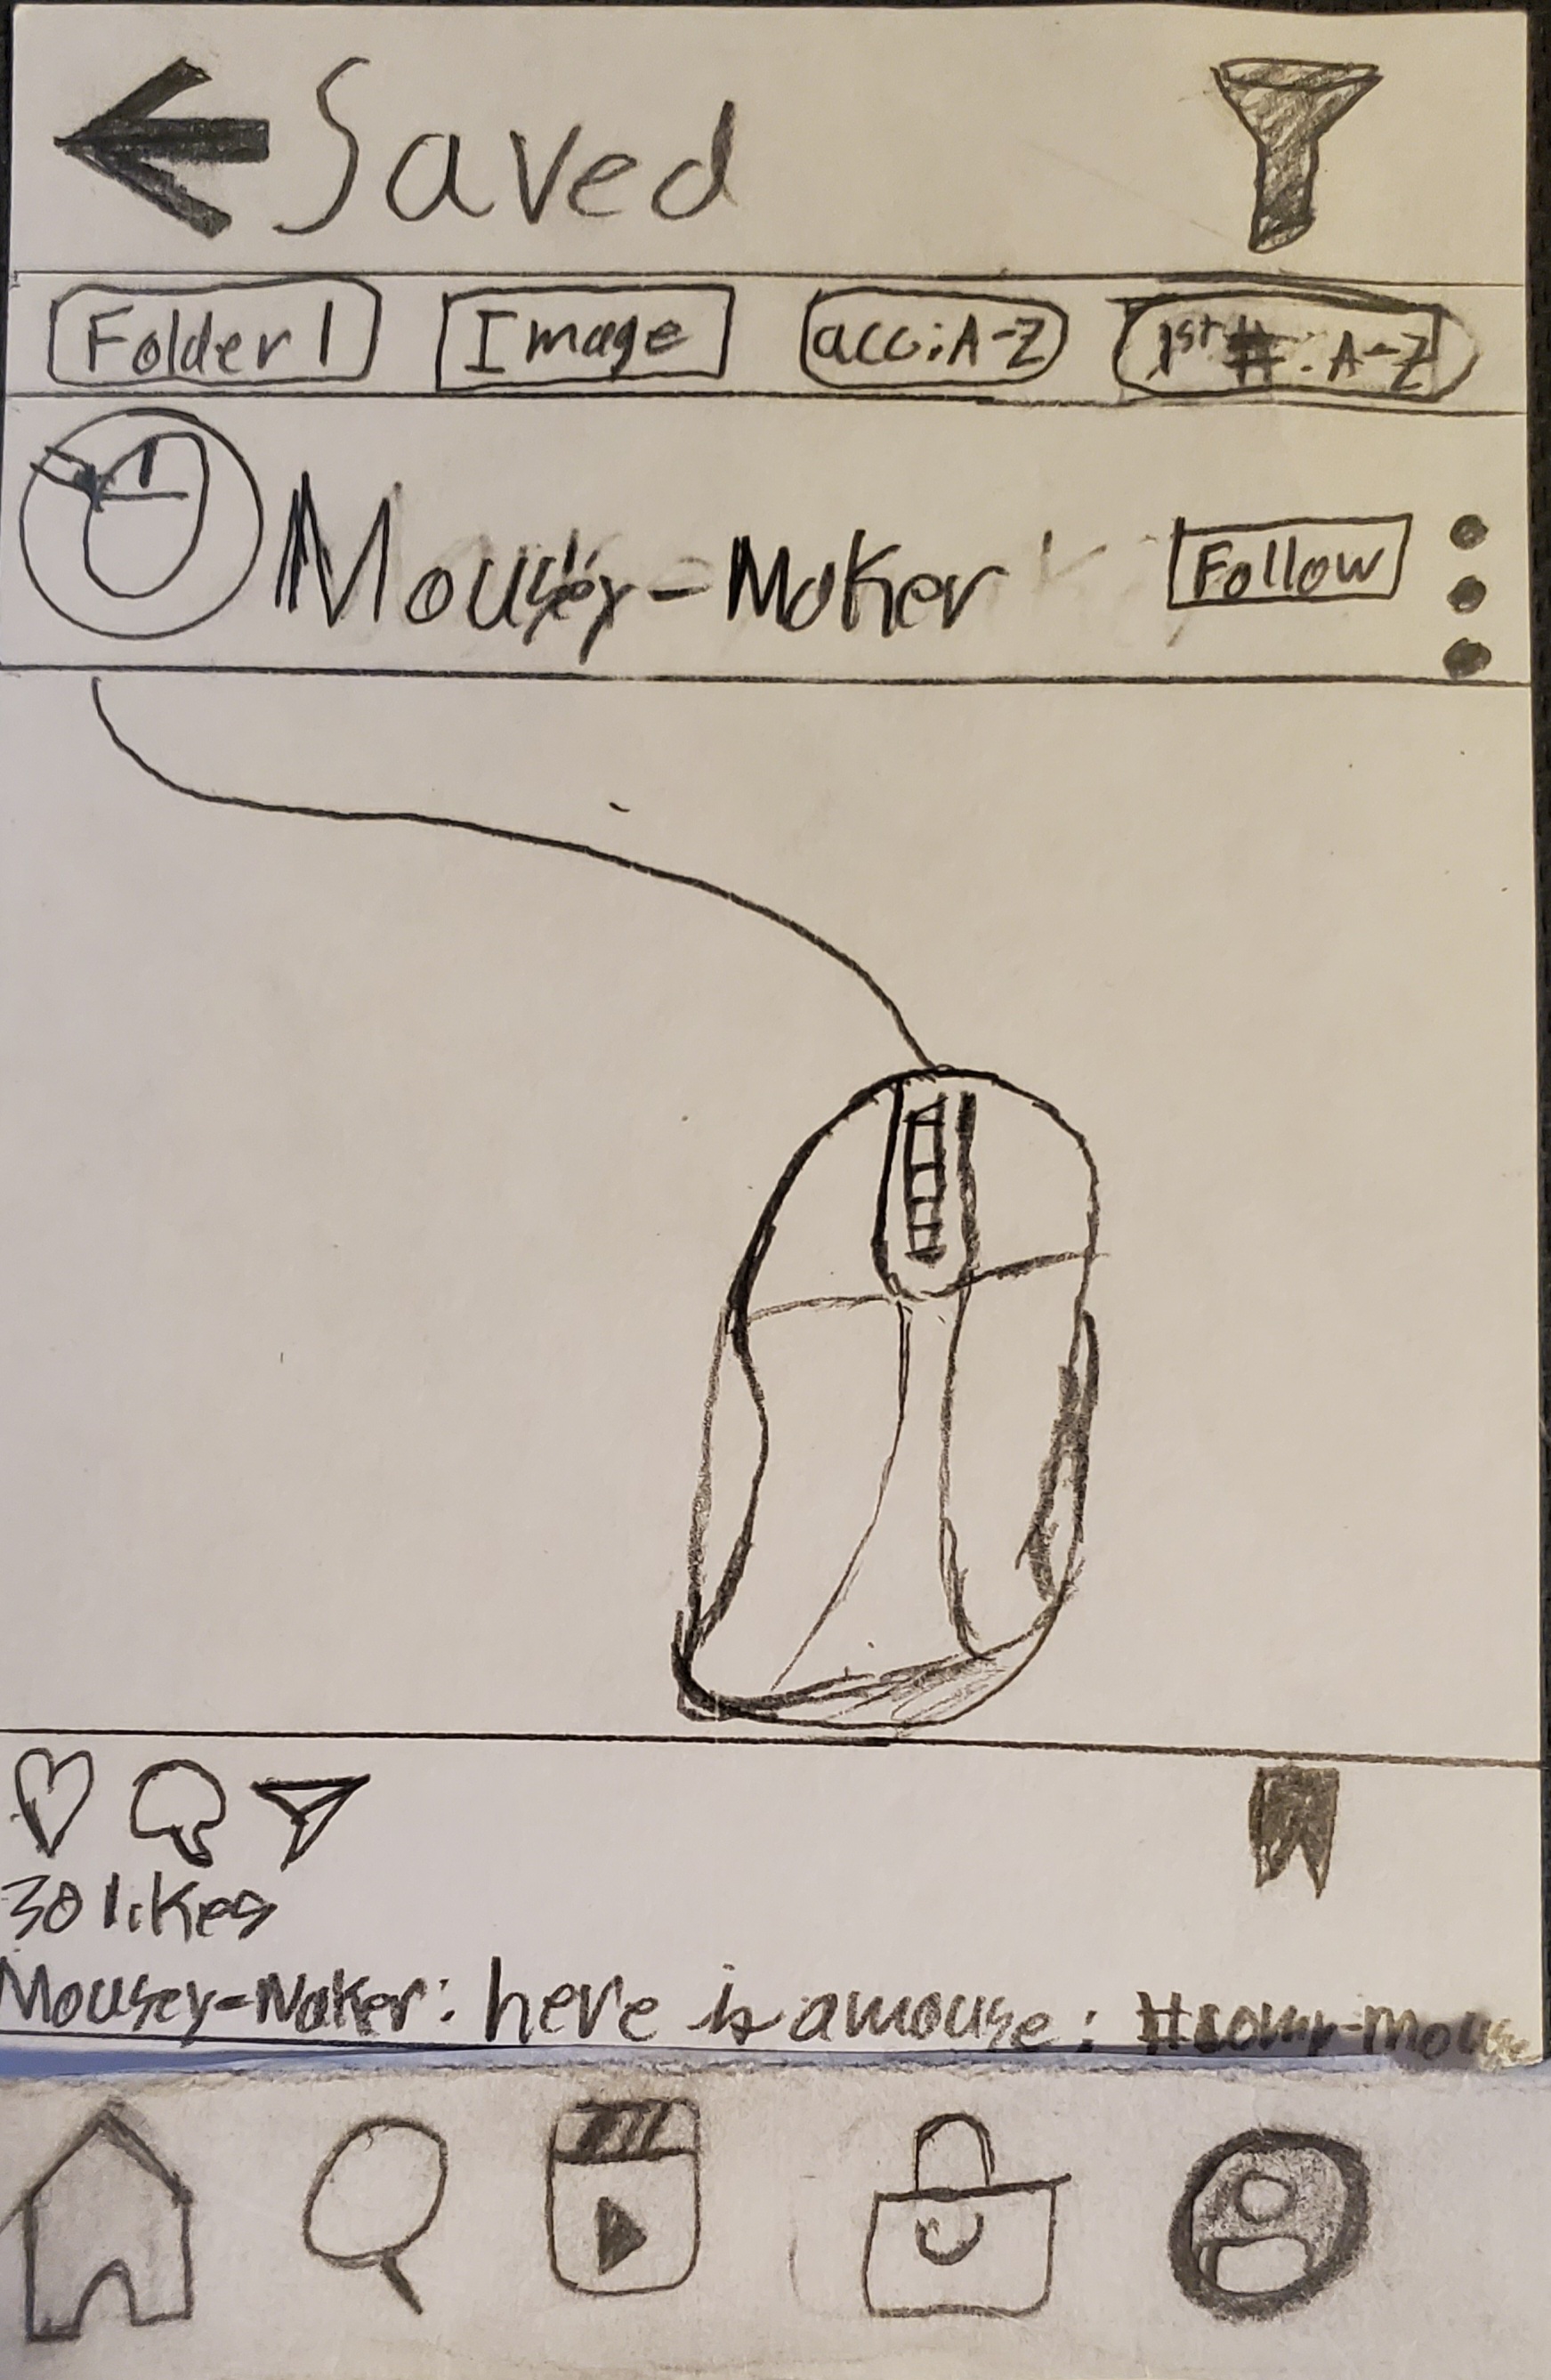 Saved
Folder 1
Image
acc:A-Z
1st #:A-Z
Mousey-Maker
Follow
30 likes
Mousey-Maker: here is a mouse: